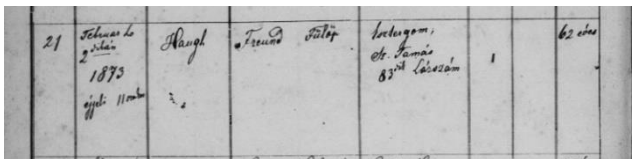 21
Februar
2
1873
éjjeli 11 óra
Haugh
Freund Fülöp
Esztergom,
Szt. Tamás
83 házszám
1
62 éves